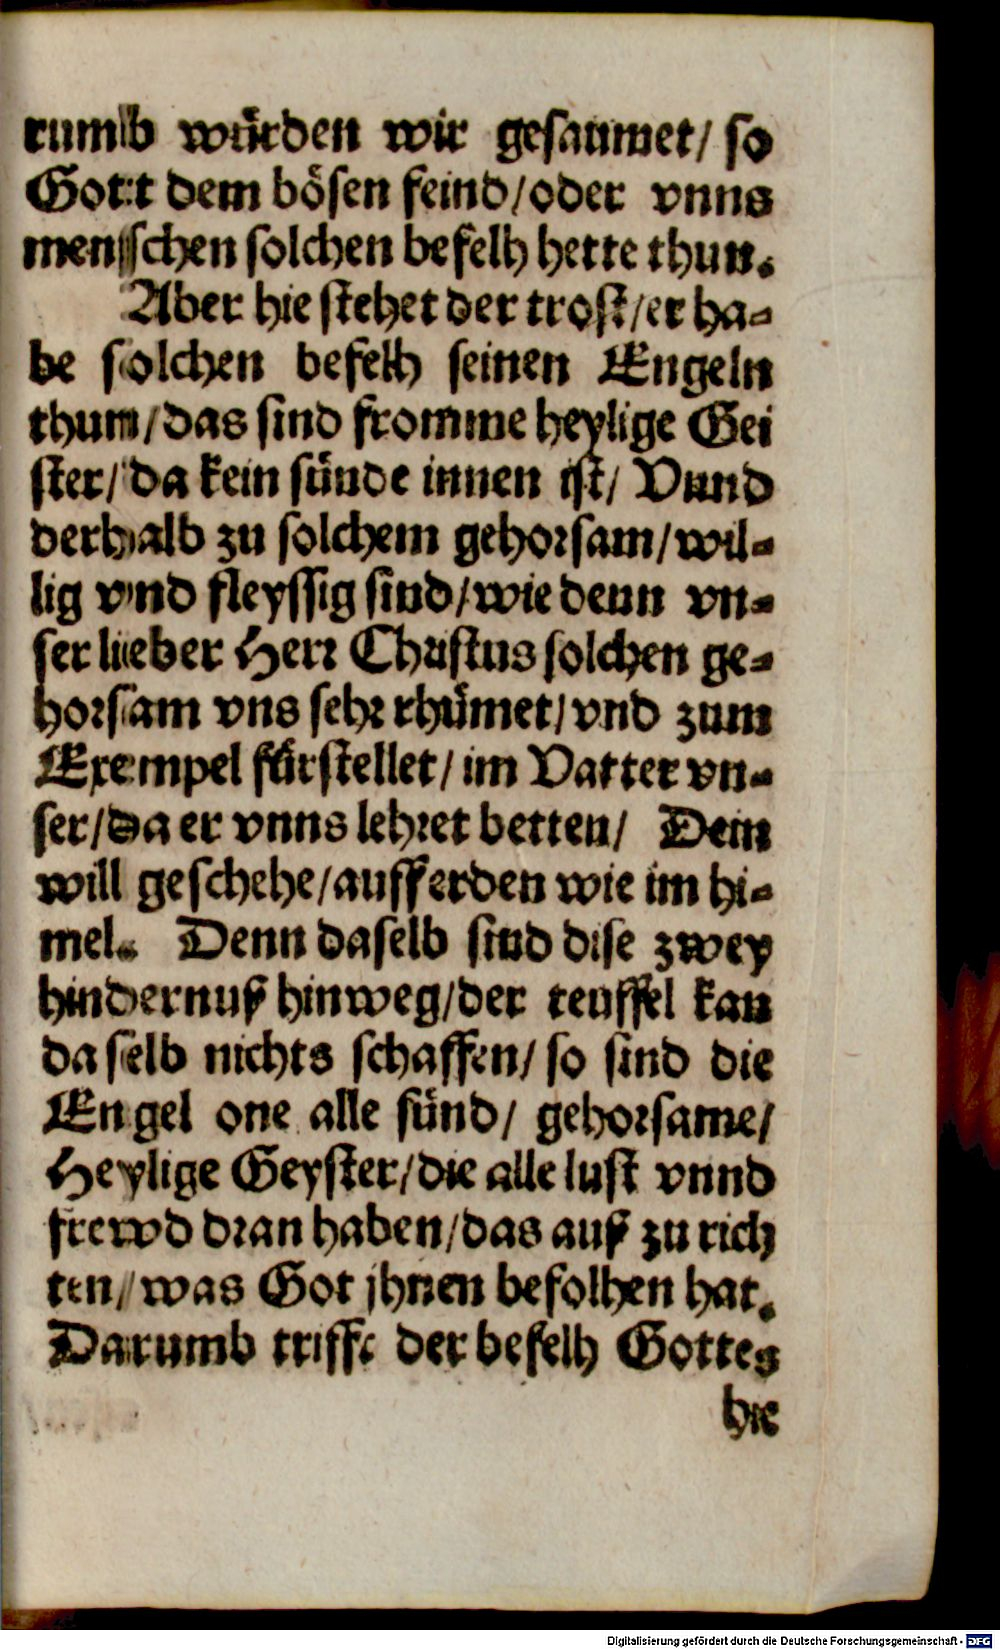 rumb würden wir gesaumet/ so
Gott dem bösen feind/oder vnns
menschen solchen befelh hette thun.
Aber hie stehet der trost/er ha-
be solchen befelh seinen Engeln
thun/das sind fromme heylige Gei
ster/da kein sünde innen ist/ Vnnd
derhalb zu solchem gehorsam/wil-
lig vnd fleyssig sind/wie denn vn-
ser lieber Herr Christus solchen ge-
horsam vns sehr rhümet/vnd zum
Exempel fürstellet/im Vatter vn-
ser/da er vnns lehret betten/ Dein
will geschehe/auff erden wie im hi-
mel. Denn daselb sind dise zwey
hindernuß hinweg/der teuffel kan
daselb nichts schaffen/so sind die
Engel one alle sünd/ gehorsame/
Heylige Geyster/die alle lust vnnd
frewd dran haben/das auß zu rich
ten/was Got jhnen befolhen hat.
Darumb trifft der befelh Gottes
hie
Digitalisierung gefördert durch die Deutsche Forschungsgemeinschaft - DFG